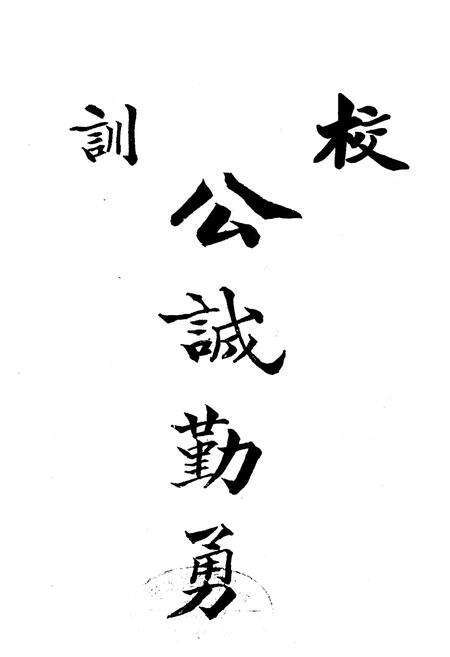 校訓
公誠勤勇